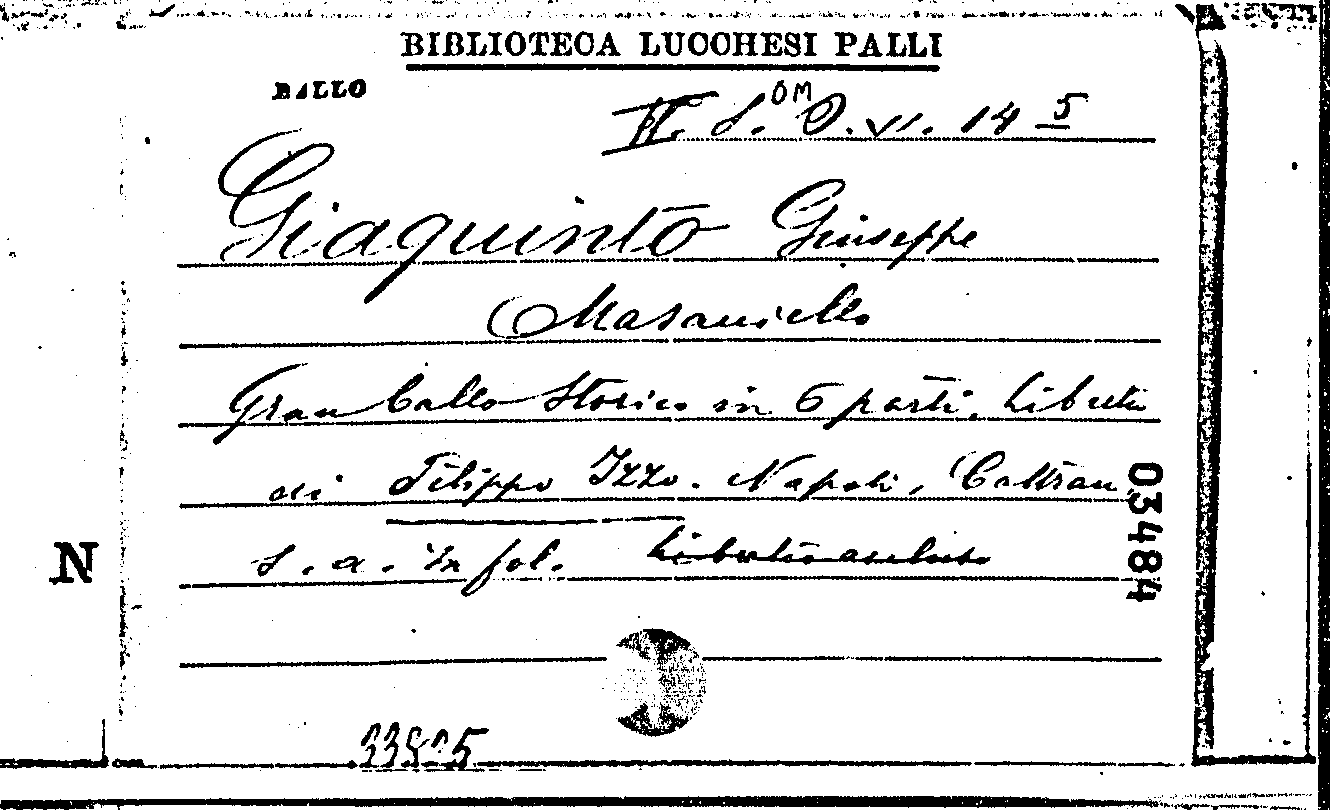 BIBLIOTECA LUCCHESI PALLI
BALLO
OM
II. S. O. VI. 14 5
Giaquinto Giuseppe
Masaniello
Gran ballo Storico in 6 parti. Libretto
di Filippo Izzo. Napoli, Cottrau,
s. a. In fol. Libretto accluso
03484
N